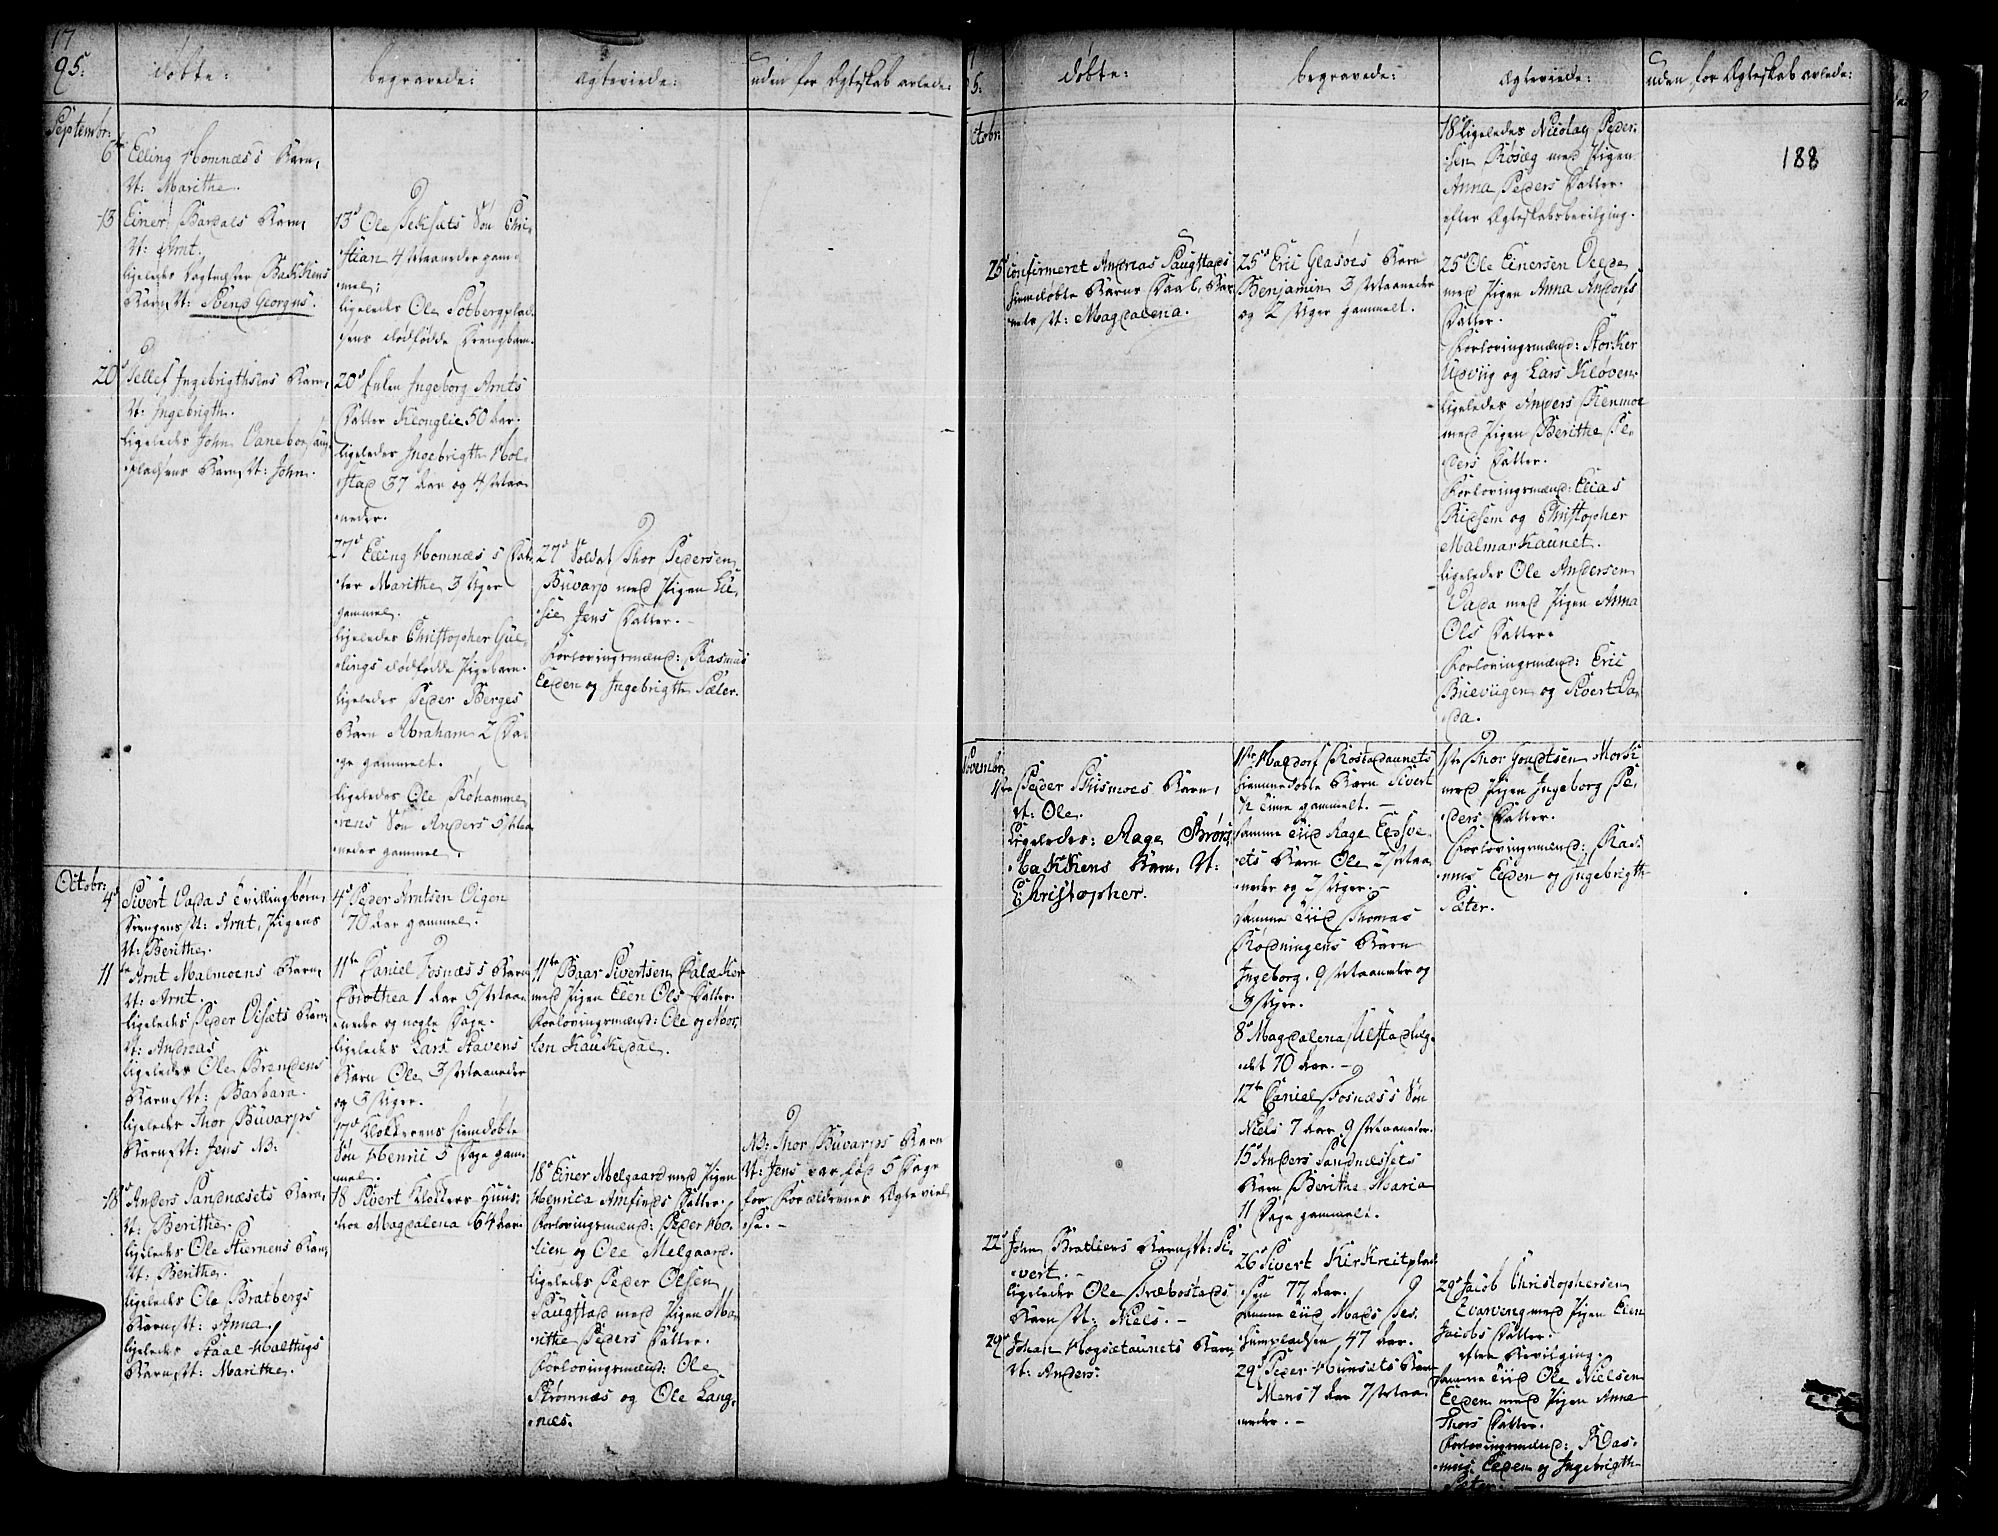 17
95.
døbte:
begravede:
ægteviede:
uden for Ægteskab avlede:
Septembr:
6te Elling Homnæs's Barn,
N: Marithe.
13 Einer Bardals Barn,
N: Arnt.
ligeledes Vagtmester Bakkens
Barn N: Svend Georgus.
20d Tellef Ingebrigthsens Barn,
N: Ingebrigth.
ligeledes John Vanebo
pladsens Barn N: John.
13d Ole Seksæts Søn Chri-
stian 4 Maaneder gam-
mel;
ligeledes Ole Solbergplad-
sens dødfødde Drengbarn.
20d Enken Ingeborg Arnts
Datter Klonglie 50 Aar.
ligeledes Ingebrigth Hol-
stad 37 Aar og 4 Maa-
neder.
27d Elling Homnæs's Dat-
ter Marithe 3 Uger
gammel.
ligeledes Christopher Gül-
lings dødfødde Pigebarn.
ligeledes Peder Berges
Barn Abraham 2 Da-
ge gammelt.
ligeledes Ole Røhamme-
rens Søn Anders 5 Maa-
neder gammel.
27d Soldat Thor Pedersen
Büvarp med Pigen El-
sie Jens Datter.
Forlovingsmænd: Rasmus
Elden og Ingebrigth Sæter.
Octobr:
4d Sivert Vadas Tvillingbørn,
Drengens N: Arnt, Pigens
N: Berithe.
11te Arnt Malmoens Barn,
N: Arnt.
ligeledes Peder Visæts Barn,
N: Andreas
ligeledes Ole Brendens
Barn N: Barbara.
ligeledes Thor Büvarps
Barn N: Jens NB:
18d Anders Sandnæsets Barn,
N: Berithe.
ligeledes Ole Stiernens Barn,
N: Berithe.
ligeledes Ole Bratbergs
Barn N: Anna
ligeledes Paal Halthugs
Barn N: Marithe.
4d Peder Arntsen Vigen
70 Aar gammel.
11te Daniel Fosnæs's Barn
Dorothea 1 Aar 5 Maa-
neder og nogle Dage.
ligeledes Lars Stavens
Barn Ole 3 Maaneder
og 3 Uger.
17d Klokkerens hiemdøbte
Søn Henric 5 Dage gam-
mel.
18 Sivert Klokkers Huus-
troe Magdalena 64 Aar.
11te Baar Sivertsen Dalæker
med Pigen Elen Ols Datter.
Forlovingsmænd: Ole og Mor-
ten Kaukedal.
18d Einer Melgaard med Pigen
Henrica Amfinds Datter.
Forlovingsmænd: Peder Ho-
lien og Ole Melgaard.
ligeledes Peder Olsen
Saugstad med Pigen Ma-
rithe Peders Datter.
Forlovingsmænd: Ole
Strømnæs og Ole Lang-
næs.
NB: Thor Büvarps Barn
N: Jens var fød 5 Dage
for Forældrenes Ægteviel-
se.
5.
døbte:
begravede:
ægteviede:
uden for Ægteskab avlede:
188
ctobr:
25d confirmeret Andreas Saugstads
hiemdøbte Barns Daab, Bar-
nets N: Magdalena.
25d Eric Glasøes Barn
Benjamin 3 Maaneder
og 2 Uger gammelt.
18d ligeledes Nicolay Peder-
sen Røseg med Pigen
Anna Peders Datter.
efter Ægteskabsbevilging.
25d Ole Einersen Velde
med Pigen Anna Andors
Datter.
Forlovingsmænd: Storker
Udviig og Lars Kloven.
ligeledes Anders Renmoe
med Pigen Berithe Pe-
ders Datter.
Forlovingsmænd: Elias
Ridsem og Christopher
Malmarkaunet.
ligeledes Ole Andersen
Vada med Pigen Anna
Ols Datter.
Forlovingsmænd: Eric
Buevigen og Sivert Va-
da.
Novembr:
1te Peder Thismoes Barn,
N: Ole.
Ligeledes: Aage Brør-
bakkens Barn, N:
Christopher.
22d John Bratliens Barn N: Si-
vert.
ligeledes Ole Træbostads
Barn N: Niels.
29d Johan Hogsetaunets Barn
N: Anders.
1te Haldor Rostadaunets
hiemmedøbte Barn Sivert
½ Time gammelt.
samme Tiid Aage Eldsve-
ets Barn Ole 2 Maa-
neder og 2 Uger.
samme Tiid Thomas
Rødningens Barn
Ingeborg, 9 Maaneder og
3 Uger.
8d Magdalena Ulstad
70 Aar.
12te Daniel Fosnæs's Søn
Niels 7 Aar 9 Maaneder.
15 Anders Sandnæssets
Barn Berithe Maria
11 Dage gammelt.
26d Sivert Kirkreitplad-
sen 77 Aar.
samme Tiid Mads Ses-
humpladsen 47 Aar.
29d Peder Hunsæts Barn
Mens 7 Aar 7 Maa-
neder.
1te Thor Joudtsen Morsk
med Pigen Ingeborg Pe-
ders Datter.
Forlovingsmænd: Ras-
mus Elden og Ingebrigth
Sæter.
29d Jacob Christophersen
Evarveng med Pigen Elen
Jacobs Datter.
efter Bevilging.
samme Tiid Ole Nielsen
Elden med Pigen Anna
Thors Datter.
Forlovingsmænd: Ras-
mus Elden og Ingebrigth
Sæter.